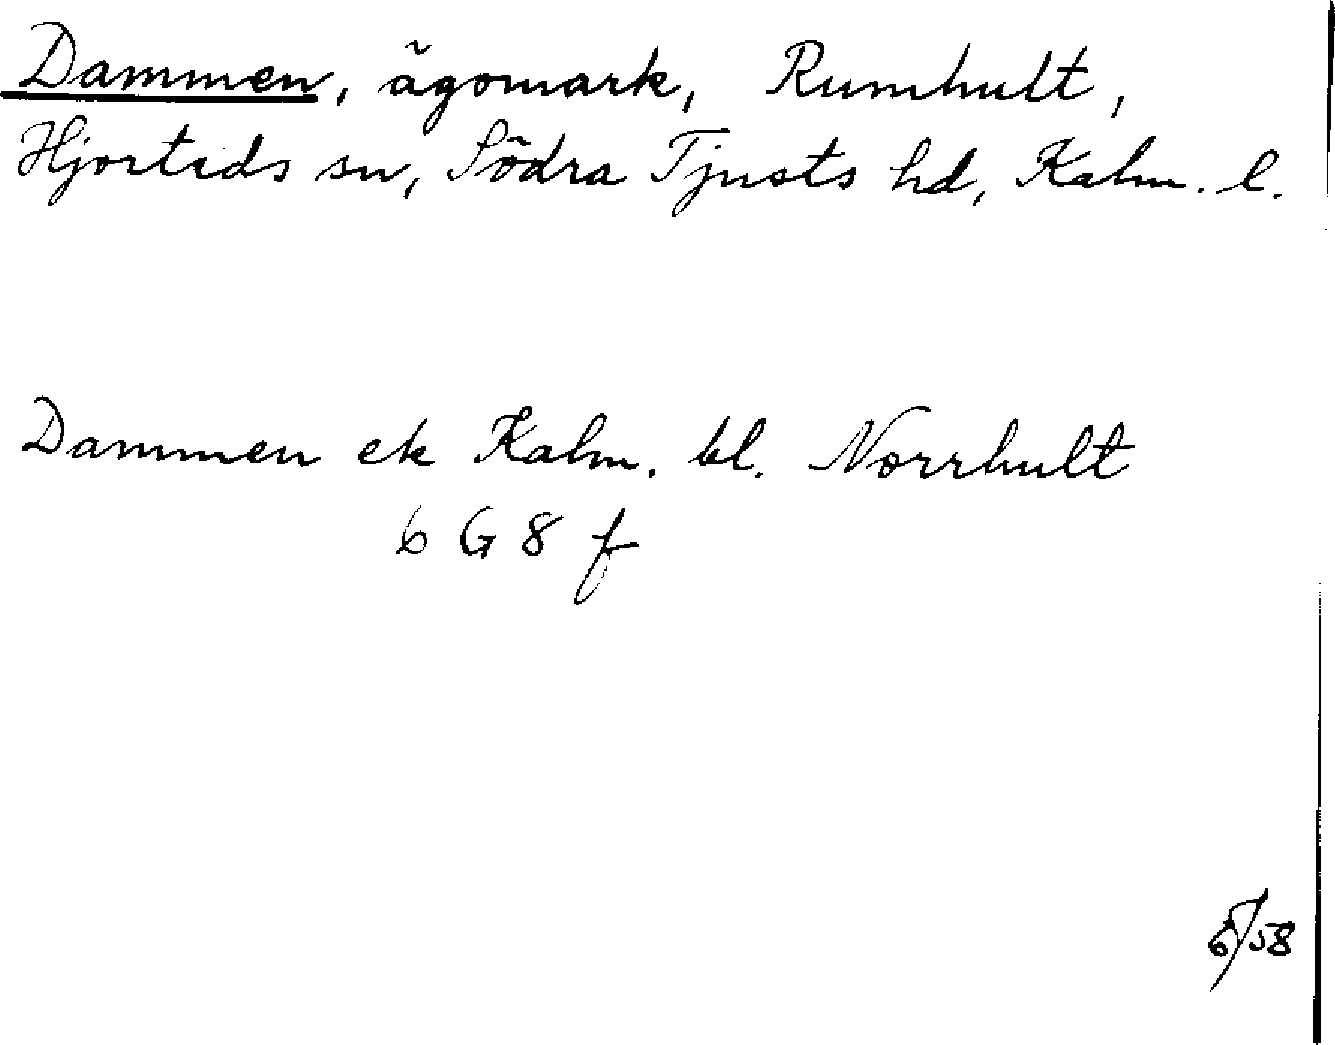 Dammen, ägomark, Rumhult,
Hjorteds sn, Södra Tjusts hd, Kalm. l.
Dammen ek Kalm. bl. Norrhult
6 G 8 f